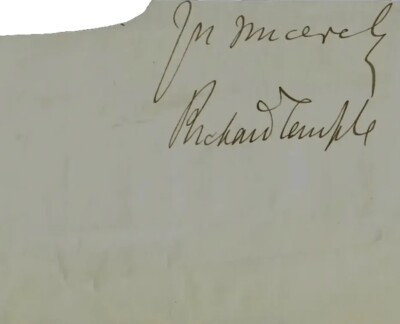 Yrs sincerely
Richard Temple